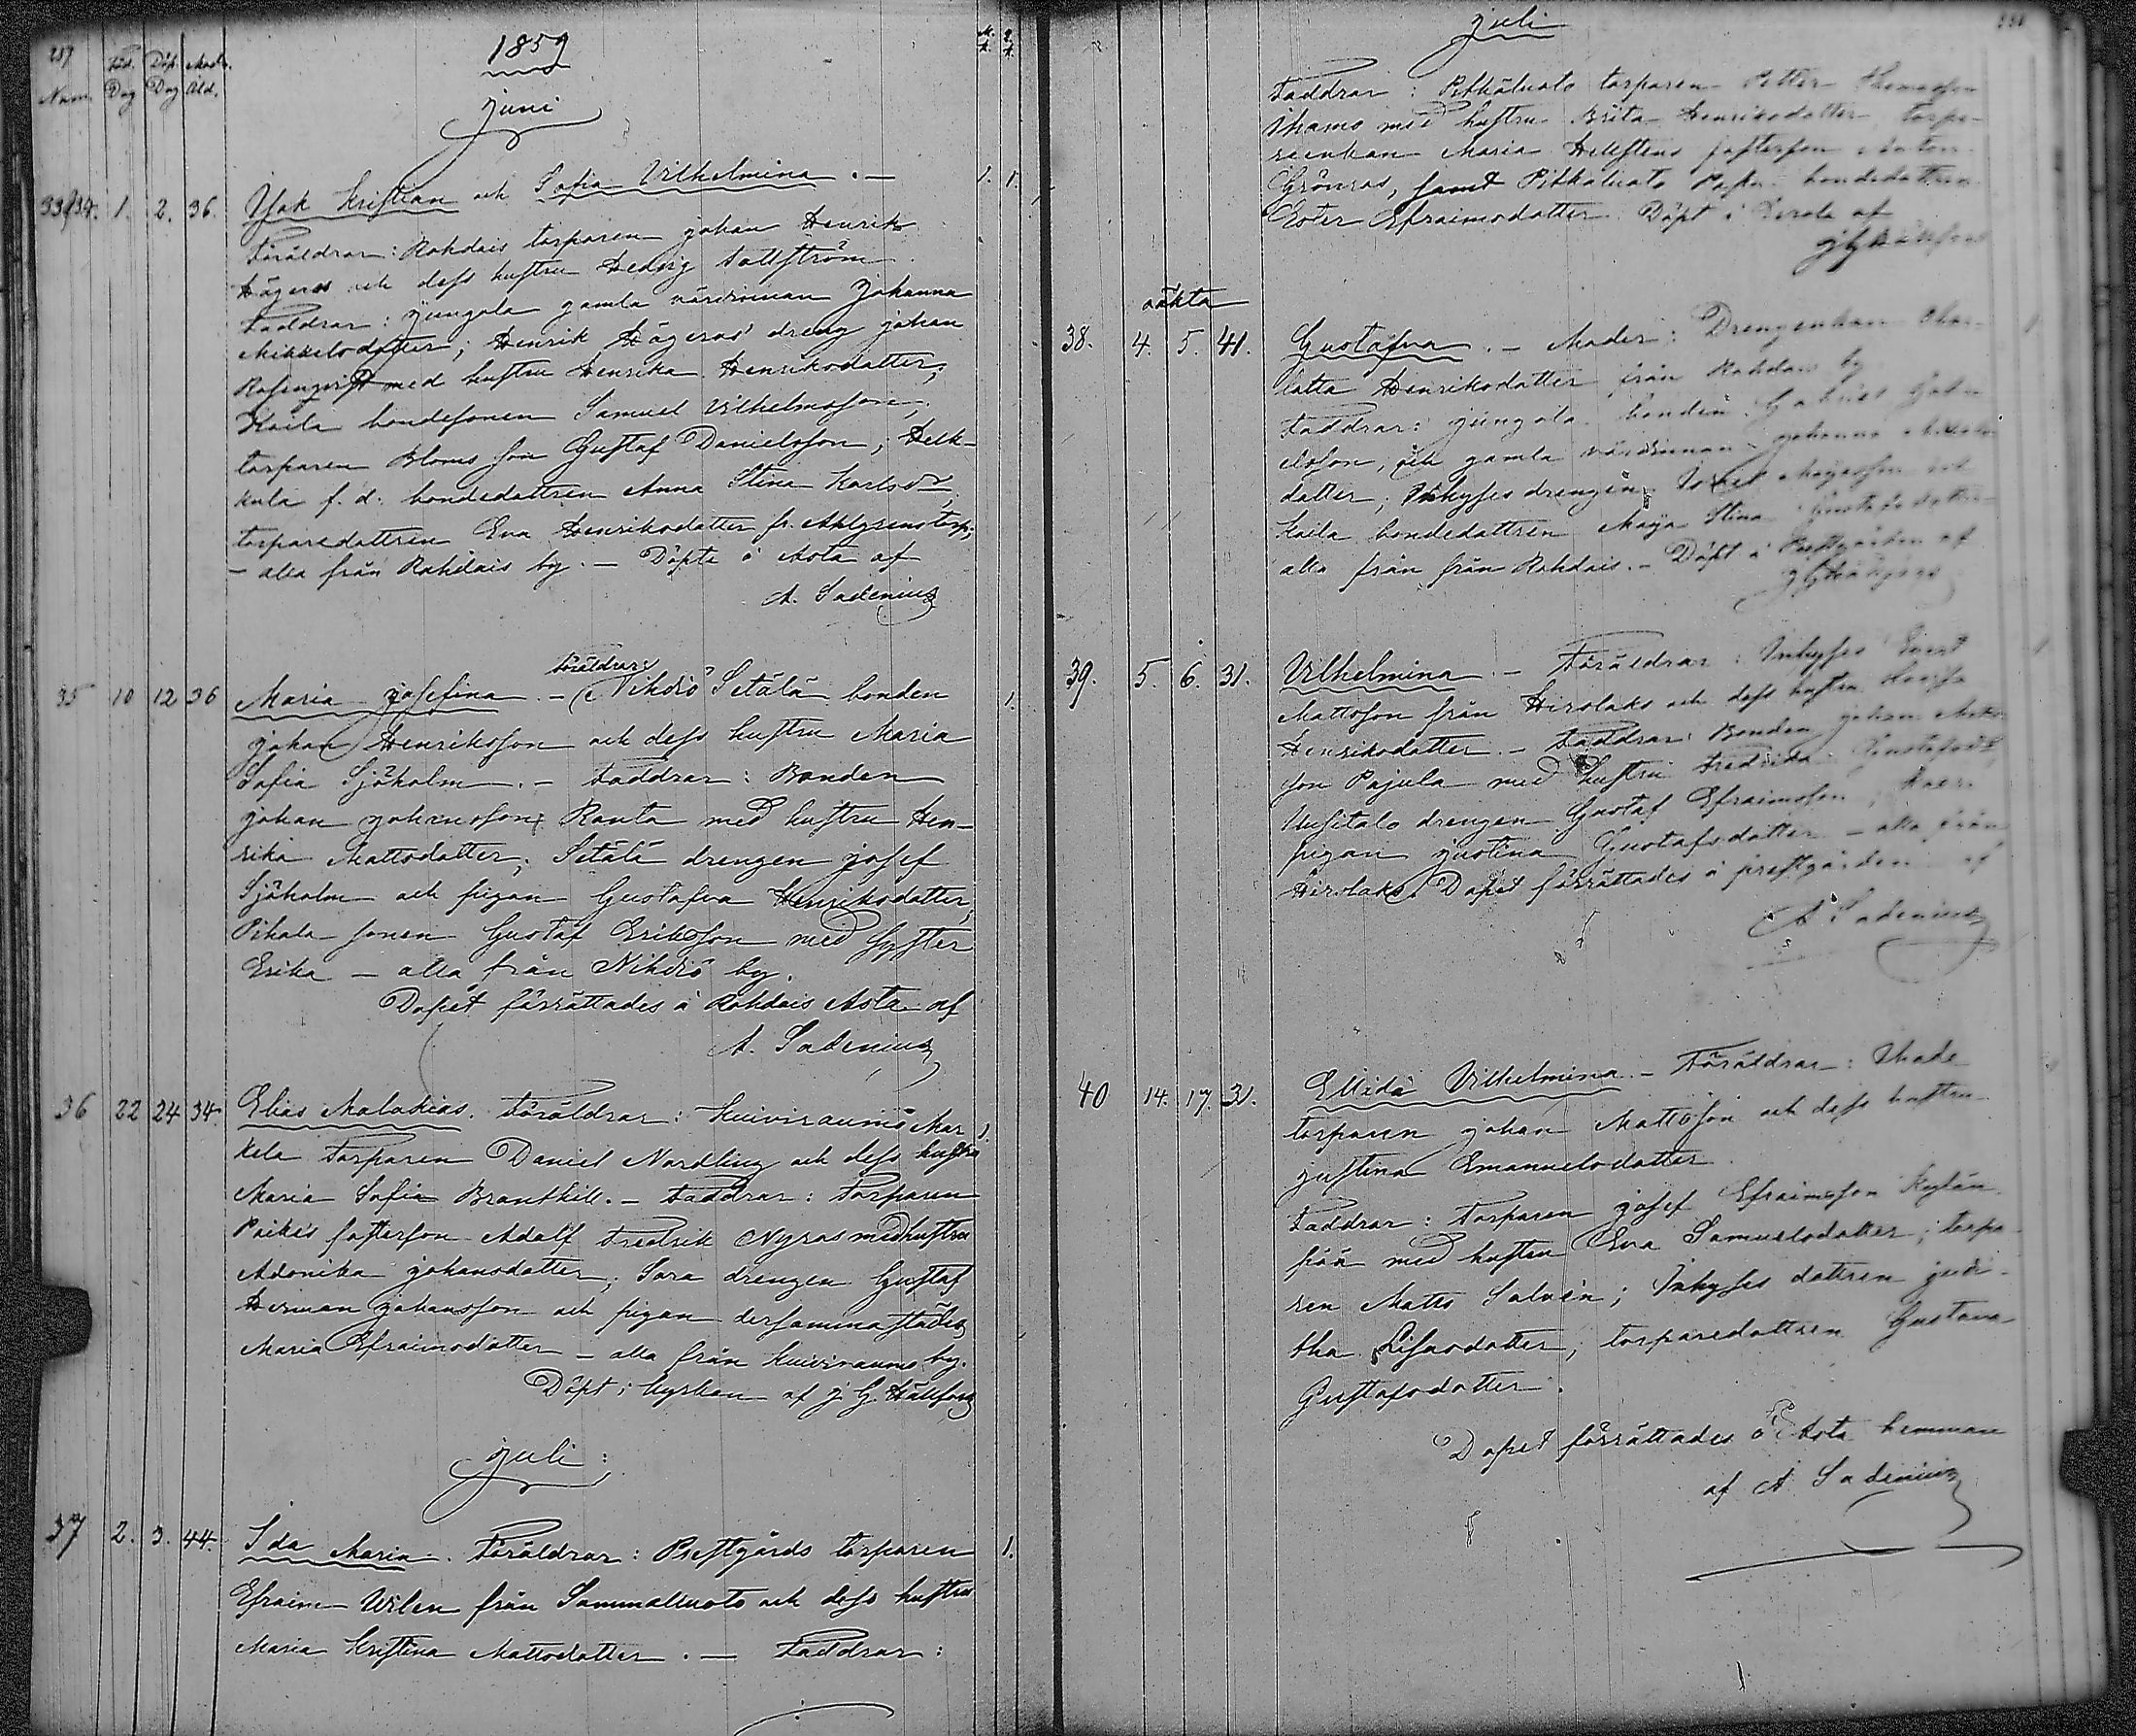 257
1859
M. Q.
k. k.
Num. Föd. Dag Döp. Dag Modr. Åld.
Juni
33/34. 1. 2. 36. Isak Kristian och Sofia Vilhelmina. — 1. 1.
Föräldrar: Rohdais torparen Johan Henrik
Hägeros och dess hustru Hedvig
Faddrar: Jungola gamla värdinnan Johanna
Mikkelsdotter; Henrik Hägeros dreng Johan
med hustru Henrika Henriksdotter;
Kaila bondesonen Samuel Vilhelmsson,
torparen Bloms son Gustaf Danielsson; Heik-
kula f. d. bondedottren Anna Stina Karlsdr
torparedottren Eva Henriksdotter fr. Ahlgrens torp;
— alla från Rohdais by. — Döpte å Asta af
A. Sadenius
35 10 12 36 Maria Josefina. — Föräldrar: Nihdiö Setälä bonden 1.
Johan Henriksson och dess hustru Maria
Sofia Sjöholm. — Faddrar: Bonden
Johan Johansson Ranta med hustru Hen-
rika Mattsdotter; Setälä drengen Josef
Sjöholm och pigan Gustafva Henriksdotter;
Pihala sonen Gustaf Eriksson med syster
Erika — alla från Nihdiö by.
Dopet förrättades å Rohdais Asta af
A. Sadenius
36 22 24 34. Elias Malakias. Föräldrar: Kuiviraumo Mar 1.
kela Torparen Daniel Nordling och dess hustru
Maria Sofia Branthill. — Faddrar: Torparen
fosterson Adolf Fredrik Nyros med hustru
Adonika Johansdotter; Sara drengen Gustaf
Herman Johansson och pigan dersammastädes
Maria Efraimsdotter — alla från Kuiviraumo by.
Döpt i kyrkan af J G Hällfors
Juli:
37 2. 3. 44. Ida Maria. Föräldrar: Prestgårds torparen 1.
Efraim Wilen från Sammalluoto och dess hustru
Maria Kristina Mattsdotter. — Faddrar:
Juli
Faddrar: Pitkäluoto torparen Petter Thomasson
med hustru Brita Henriksdotter torpa-
reenkan Maria fosterson Anton
Grönros, samt Pitkäluoto bondedottren
Ester Efraimsdotter. Döpt i af
oäkta
38. 4. 5. 41. Gustafva. — Moder: Drengenkan Char-
lotta Henriksdotter från Rohdais by
Faddrar: Jungola bonden Gabriel
och gamla värdinnan Johanna Mikkels-
dotter; Inhyses drengen och
Kaila bondedottren Maja Stina Gustafsdotter
alla från från Rohdais. — Döpt i Prestgården af
39. 5. 6. 31. Vilhelmina. — Föräldrar: Inhyses
Mattsson från Hirslaks och dess hustru
Henriksdotter. — Faddrar: Bonden Johan Matts-
son Pajula med hustru Fredrika Gustafsdr
Uusitalo drengen Gustaf Efraimsson,
pigan Justina Gustafsdotter — alla från
Hirslaks. Dopet förrättades å prestgården af
A Sadenius
40 14. 17. 31. Ellida Vilhelmina. — Föräldrar:
torparen Johan Mattsson och dess hustru
Justina Emanuelsdotter.
Faddrar: Torparen Josef Efraimsson Kylän
pää med hustru Eva Samuelsdotter; torpa-
ren Matts Salvén; Inhyses dottren Judi-
tha torparedottren Gustava
Gustafsdotter.
Dopet förrättades å Asta hemman
af A Sadenius